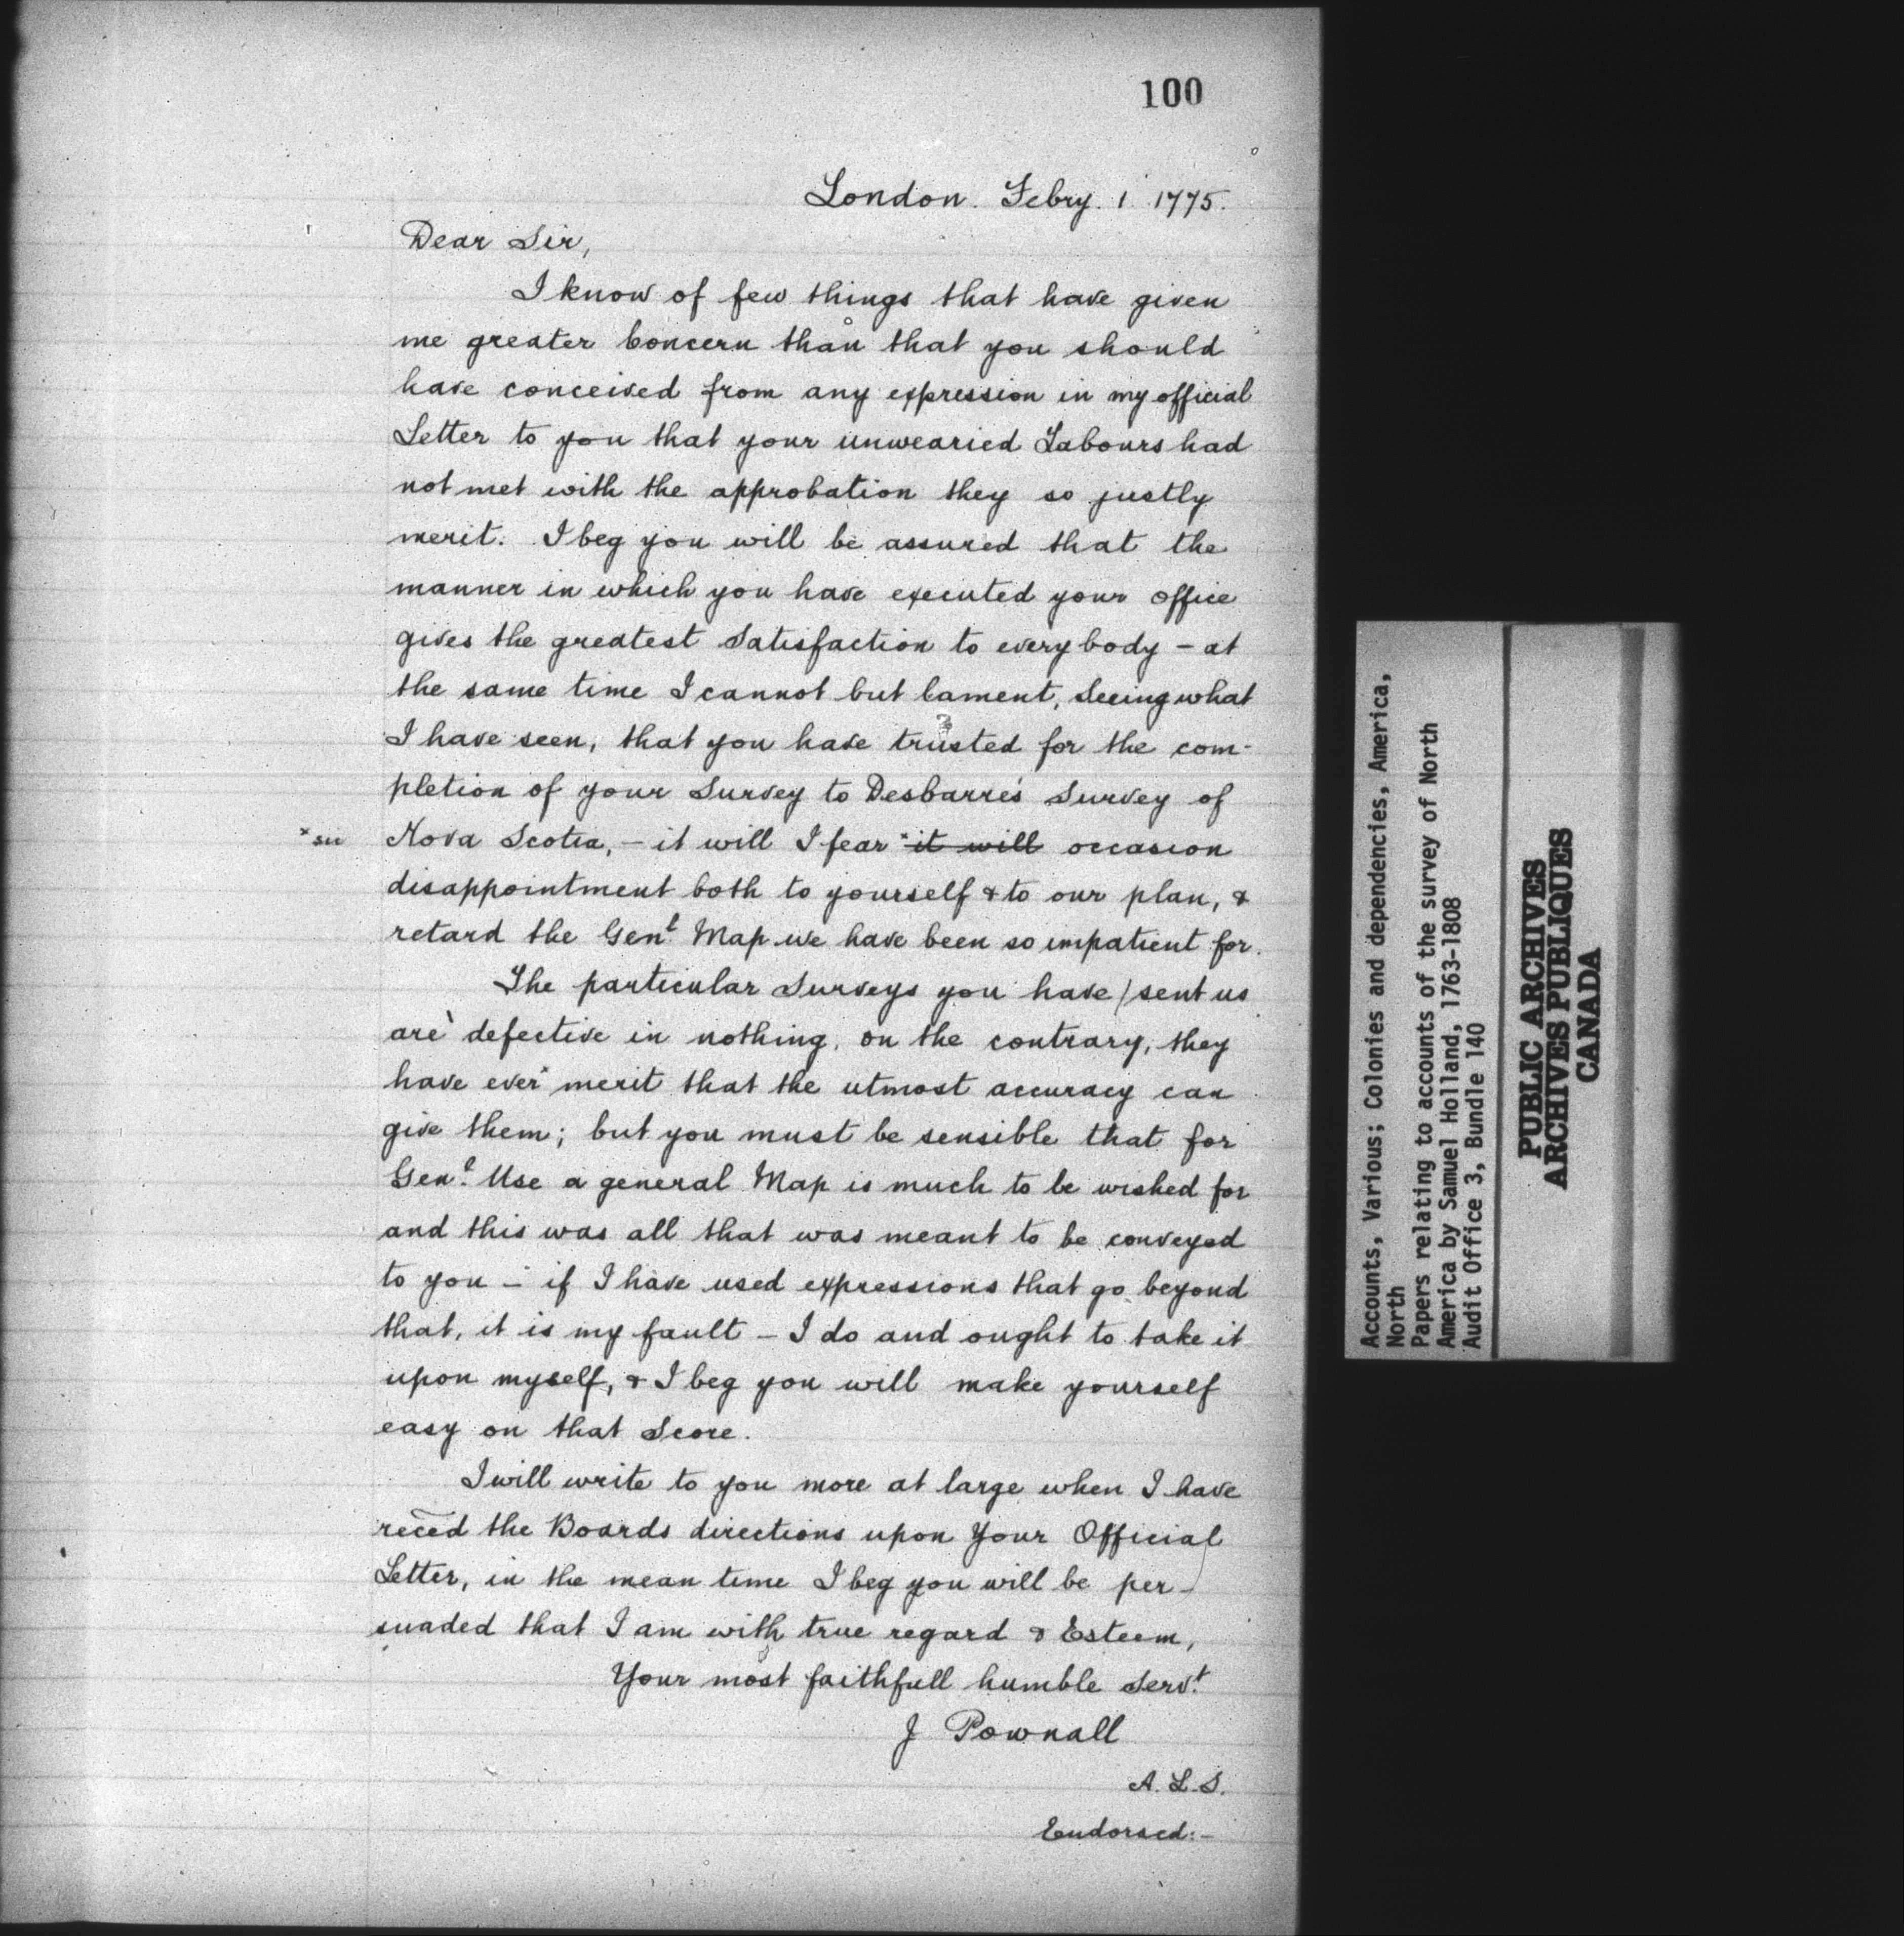 100
London. Febry. 1 1775.
Dear Sir,
I know of few things that have given
me greater Concern than that you should
have conceived from any expression in my official
Letter to you that your unwearied Labours had
not met with the approbation they so justly
merit. I beg you will be assured that the
manner in which you have executed your office
gives the greatest Satisfaction to every body - at
the same time I cannot but lament, Seeing what
I have seen, that you have trusted for the com-
pletion of your Survey to Desbarre's Survey of
* sic Nova Scotia, - it will I fear * it will occasion
disappointment both to yourself & to our plan, &
retard the Genl. Map we have been so impatient for.
The particular Surveys you have sent us
are defective in nothing, on the contrary, they
have ever merit that the utmost accuracy can
give them; but you must be sensible that for
Genl. Use a general Map is much to be wished for
and this was all that was meant to be conveyed
to you - if I have used expressions that go beyond
that, it is my fault - I do and ought to take it
upon myself, & I beg you will make yourself
easy on that Score.
I will write to you more at large when I have
reced the Boards directions upon Your Official
Letter, in the mean time I beg you will be per-
suaded that I am with true regard & Esteem,
Your most faithfull humble Servt.
J Pownall
A. L. S.
Endorsed:-
Accounts, Various; Colonies and dependencies, America,
North
Papers relating to accounts of the survey of North
America by Samuel Holland, 1763-1808
Audit Office 3, Bundle 140
PUBLIC ARCHIVES
ARCHIVES PUBLIQUES
CANADA